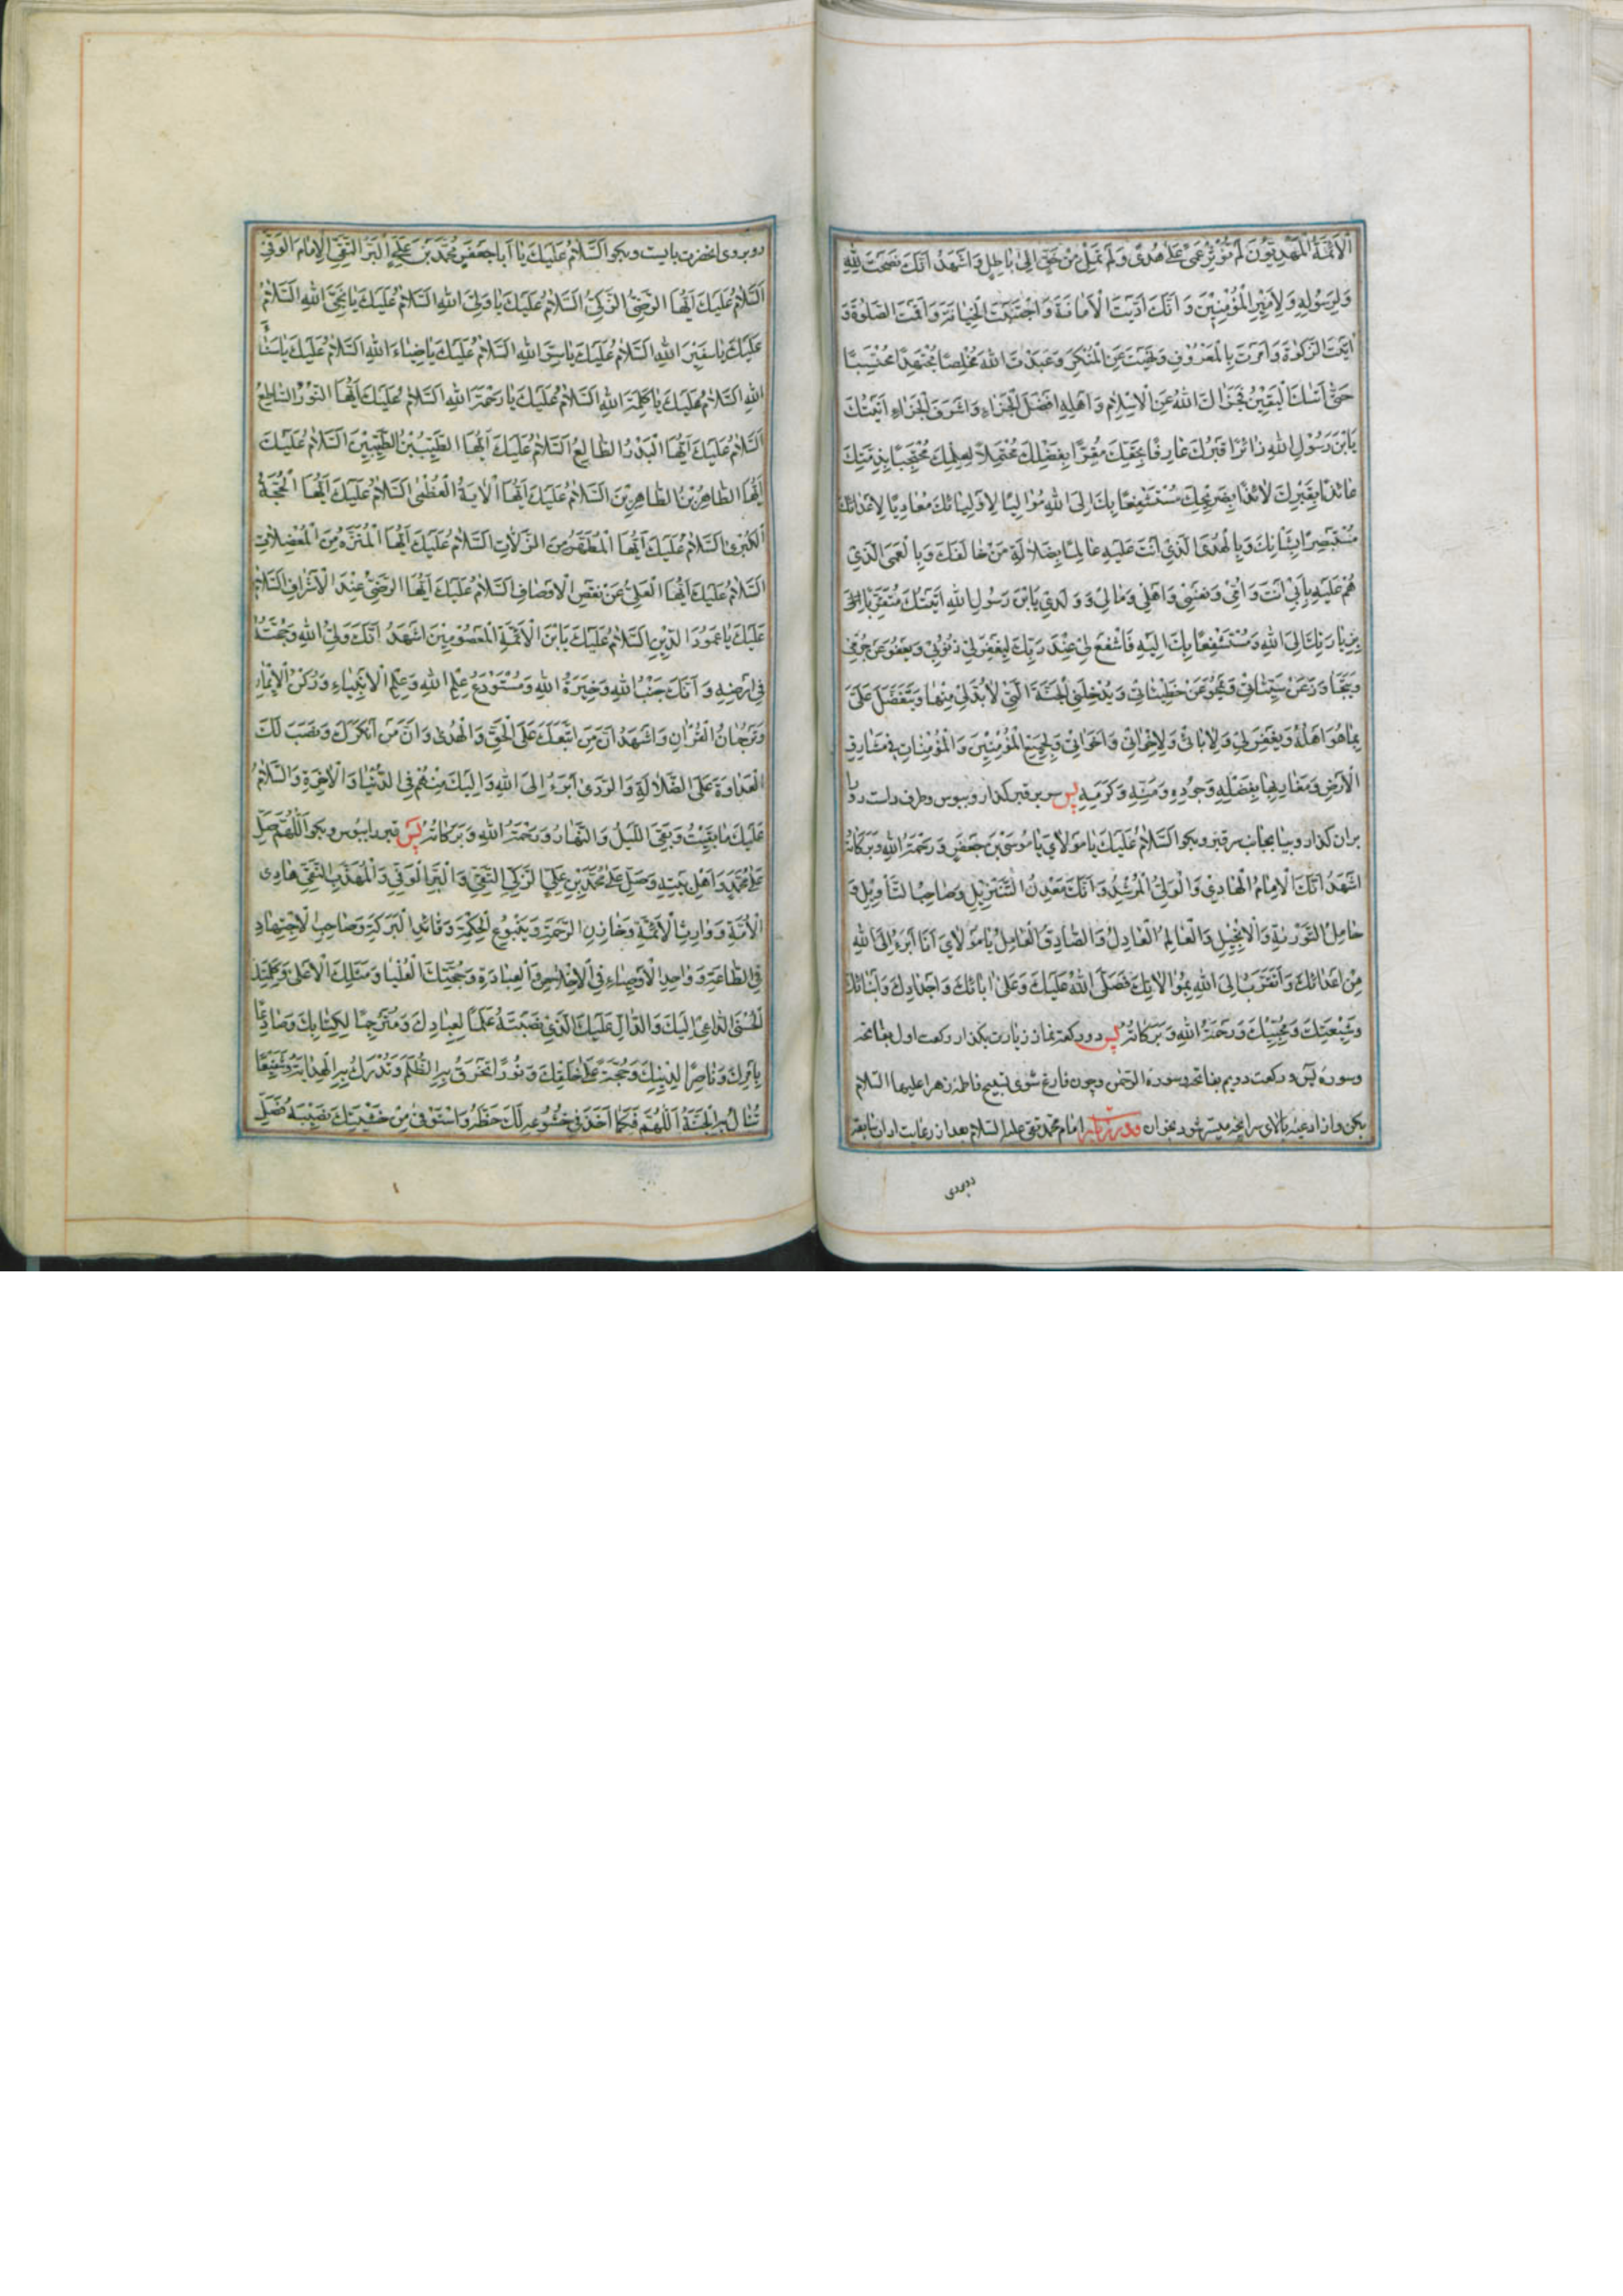 الْاَئِمَّةُ الْمَهْدِيُّونَ لَمْ تُؤْثِرْ عَمًى عَلٰى هُدًى وَلَمْ تَمِلْ مِنْ حَقٍّ اِلٰى بَاطِلٍ وَاَشْهَدُ اَنَّكَ نَصَحْتَ لِلّٰهِ
وَلِرَسُولِهِ وَلِاَمِيرِ الْمُؤْمِنِينَ وَاَنَّكَ اَدَّيْتَ الْاَمَانَةَ وَاجْتَنَبْتَ الْخِيَانَةَ وَاَقَمْتَ الصَّلٰوةَ وَ
اٰتَيْتَ الزَّكٰوةَ وَاَمَرْتَ بِالْمَعْرُوفِ وَنَهَيْتَ عَنِ الْمُنْكَرِ وَعَبَدْتَ اللهَ مُخْلِصًا مُجْتَهِدًا مُحْتَسِبًا
حَتّٰى اَتٰىكَ الْيَقِينُ فَجَزَاكَ اللهُ عَنِ الْاِسْلَامِ وَاَهْلِهِ اَفْضَلَ الْجَزَاءِ وَاَشْرَفَ الْجَزَاءِ اَتَيْتُكَ
يَابْنَ رَسُولِ اللهِ زَائِرًا قَبْرَكَ عَارِفًا بِحَقِّكَ مُقِرًّا بِفَضْلِكَ مُحْتَمِلًا لِعِلْمِكَ مُحْتَجِبًا بِذِمَّتِكَ
عَائِذًا بِقَبْرِكَ لَائِذًا بِضَرِيحِكَ مُسْتَشْفِعًا بِكَ اِلَى اللهِ مُوَالِيًا لِاَوْلِيَائِكَ مُعَادِيًا لِاَعْدَائِكَ
مُسْتَبْصِرًا بِشَانِكَ وَبِالْهُدَى الَّذِي اَنْتَ عَلَيْهِ عَالِمًا بِضَلَالَةِ مَنْ خَالَفَكَ وَبِالْعَمَى الَّذِي
هُمْ عَلَيْهِ بِاَبِي اَنْتَ وَاُمِّي وَنَفْسِي وَاَهْلِي وَمَالِي وَوَلَدِي يَابْنَ رَسُولِ اللهِ اَتَيْتُكَ مُتَقَرِّبًا اِلَى
بِزِيَارَتِكَ اِلَى اللهِ وَمُسْتَشْفِعًا بِكَ اِلَيْهِ فَاشْفَعْ لِي عِنْدَ رَبِّكَ لِيَغْفِرَ لِي ذُنُوبِي وَيَعْفُوَ عَنْ جُرْمِي
وَيَتَجَاوَزَ عَنْ سَيِّئَاتِي وَيَمْحُوَ عَنْ خَطِيئَاتِي وَيُدْخِلَنِي الْجَنَّةَ الَّتِي لَابُدَّ لِي مِنْهَا وَيَتَفَضَّلَ عَلَيَّ
بِمَا هُوَ اَهْلُهُ وَيَغْفِرَ لِي وَلِاٰبَائِي وَلِاِخْوَانِي وَاَخَوَاتِي وَلِجَمِيعِ الْمُؤْمِنِينَ وَالْمُؤْمِنَاتِ فِي مَشَارِقِ
الْاَرْضِ وَمَغَارِبِهَا بِفَضْلِهِ وَجُودِهِ وَمَنِّهِ وَكَرَمِهِ پس سر بر قبر گذار و ببوس و طرف راست رو را
بران گذار و بیا بجانب سر قبر و بگو اَلسَّلَامُ عَلَيْكَ يَا مَوْلَايَ يَا مُوسَى بْنَ جَعْفَرٍ وَرَحْمَةُ اللهِ وَبَرَكَاتُهُ
اَشْهَدُ اَنَّكَ الْاِمَامُ الْهَادِي وَالْوَلِيُّ الْمُرْشِدُ وَاَنَّكَ مَعْدِنُ التَّنْزِيلِ وَصَاحِبُ التَّاْوِيلِ وَ
حَامِلُ التَّوْرٰيةِ وَالْاِنْجِيلِ وَالْعَالِمُ الْعَادِلُ وَالصَّادِقُ الْعَامِلُ يَا مَوْلَايَ اَنَا اَبْرَءُ اِلَى اللهِ
مِنْ اَعْدَائِكَ وَاَتَقَرَّبُ اِلَى اللهِ بِمُوَالَاتِكَ فَصَلَّى اللهُ عَلَيْكَ وَعَلٰى اٰبَائِكَ وَاَجْدَادِكَ وَاَبْنَائِكَ
وَشِيعَتِكَ وَمُحِبِّيكَ وَرَحْمَةُ اللهِ وَبَرَكَاتُهُ پس دو ركعت نماز زیارت بگذار ركعت اول بفاتحه
و سوره یس و ركعت دویم بفاتحه و سورة الرحمن و چون فارغ شوی تسبیح فاطمه زهرا علیها السلام
بكن و از ادعیه بالای سر آنچه میسر شود بخوان امام محمد تقی علیه السلام بعد از رعایت اداب
روبروی
روبروی انحضرت بایست و بگو اَلسَّلَامُ عَلَيْكَ يَا اَبَا جَعْفَرٍ مُحَمَّدَ بْنَ عَلِيٍّ الْبَرَّ التَّقِيَّ الْاِمَامَ الْوَفِيَّ
اَلسَّلَامُ عَلَيْكَ اَيُّهَا الرَّضِيُّ الزَّكِيُّ اَلسَّلَامُ عَلَيْكَ يَا وَلِيَّ اللهِ اَلسَّلَامُ عَلَيْكَ يَا نَجِيَّ اللهِ اَلسَّلَامُ
عَلَيْكَ يَا سَفِيرَ اللهِ اَلسَّلَامُ عَلَيْكَ يَا سِرَّ اللهِ اَلسَّلَامُ عَلَيْكَ يَا ضِيَاءَ اللهِ اَلسَّلَامُ عَلَيْكَ يَا سَنَاءَ
اللهِ اَلسَّلَامُ عَلَيْكَ يَا كَلِمَةَ اللهِ اَلسَّلَامُ عَلَيْكَ يَا رَحْمَةَ اللهِ اَلسَّلَامُ عَلَيْكَ اَيُّهَا النُّورُ السَّاطِعُ
اَلسَّلَامُ عَلَيْكَ اَيُّهَا الْبَدْرُ الطَّالِعُ اَلسَّلَامُ عَلَيْكَ اَيُّهَا الطَّيِّبُ بْنُ الطَّيِّبِينَ اَلسَّلَامُ عَلَيْكَ
اَيُّهَا الطَّاهِرُ بْنُ الطَّاهِرِينَ اَلسَّلَامُ عَلَيْكَ اَيُّهَا الْاٰيَةُ الْعُظْمٰى اَلسَّلَامُ عَلَيْكَ اَيُّهَا الْحُجَّةُ
الْكُبْرٰى اَلسَّلَامُ عَلَيْكَ اَيُّهَا الْمُطَهَّرُ مِنَ الزَّلَّاتِ اَلسَّلَامُ عَلَيْكَ اَيُّهَا الْمُنَزَّهُ مِنَ الْمُعْضِلَاتِ
اَلسَّلَامُ عَلَيْكَ اَيُّهَا الْعَلِيُّ عَنْ نَقْصِ الْاَوْصَافِ اَلسَّلَامُ عَلَيْكَ اَيُّهَا الرَّضِيُّ عِنْدَ الْاَشْرَافِ اَلسَّلَامُ
عَلَيْكَ يَا عَمُودَ الدِّينِ اَلسَّلَامُ عَلَيْكَ يَابْنَ الْاَئِمَّةِ الْمَعْصُومِينَ اَشْهَدُ اَنَّكَ وَلِيُّ اللهِ وَحُجَّتُهُ
فِي اَرْضِهِ وَاَنَّكَ جَنْبُ اللهِ وَخِيَرَةُ اللهِ وَمُسْتَوْدَعُ عِلْمِ اللهِ وَعِلْمِ الْاَنْبِيَاءِ وَرُكْنُ الْاِيمَانِ
وَتَرْجُمَانُ الْقُرْاٰنِ وَاَشْهَدُ اَنَّ مَنِ اتَّبَعَكَ عَلَى الْحَقِّ وَالْهُدٰى وَاَنَّ مَنْ اَنْكَرَكَ وَنَصَبَ لَكَ
الْعَدَاوَةَ عَلَى الضَّلَالَةِ وَالرَّدٰى اَبْرَءُ اِلَى اللهِ وَاِلَيْكَ مِنْهُمْ فِي الدُّنْيَا وَالْاٰخِرَةِ وَالسَّلَامُ
عَلَيْكَ مَا بَقِيتُ وَبَقِيَ اللَّيْلُ وَالنَّهَارُ وَرَحْمَةُ اللهِ وَبَرَكَاتُهُ پس قبر را ببوس و بگو اَللّٰهُمَّ صَلِّ
عَلٰى مُحَمَّدٍ وَاَهْلِ بَيْتِهِ وَصَلِّ عَلٰى مُحَمَّدِ بْنِ عَلِيٍّ الزَّكِيِّ التَّقِيِّ وَالْبَرِّ الْوَفِيِّ وَالْمُهَذَّبِ النَّقِيِّ هَادِي
الْاُمَّةِ وَوَارِثِ الْاَئِمَّةِ وَخَازِنِ الرَّحْمَةِ وَيَنْبُوعِ الْحِكْمَةِ وَقَائِدِ الْبَرَكَةِ وَصَاحِبِ الْاِجْتِهَادِ
فِي الطَّاعَةِ وَوَاحِدِ الْاَوْصِيَاءِ فِي الْاِخْلَاصِ وَالْعِبَادَةِ وَحُجَّتِكَ الْعُلْيَا وَمَثَلِكَ الْاَعْلٰى وَكَلِمَتِكَ
الْحُسْنٰى الدَّاعِي اِلَيْكَ وَالدَّالِّ عَلَيْكَ الَّذِي نَصَبْتَهُ عَلَمًا لِعِبَادِكَ وَمُتَرْجِمًا لِكِتَابِكَ وَصَادِعًا
بِاَمْرِكَ وَنَاصِرًا لِدِينِكَ وَحُجَّةً عَلٰى خَلْقِكَ وَنُورًا تَخْرُقُ بِهِ الظُّلَمَ وَتُدْرَكُ بِهِ الْهِدَايَةُ وَشَفِيعًا
تُنَالُ بِهِ الْجَنَّةُ اَللّٰهُمَّ فَكَمَا اَخَذَ فِي خُشُوعِهِ لَكَ حَظَّهُ وَاسْتَوْفٰى مِنْ خَشْيَتِكَ نَصِيبَهُ فَصَلِّ